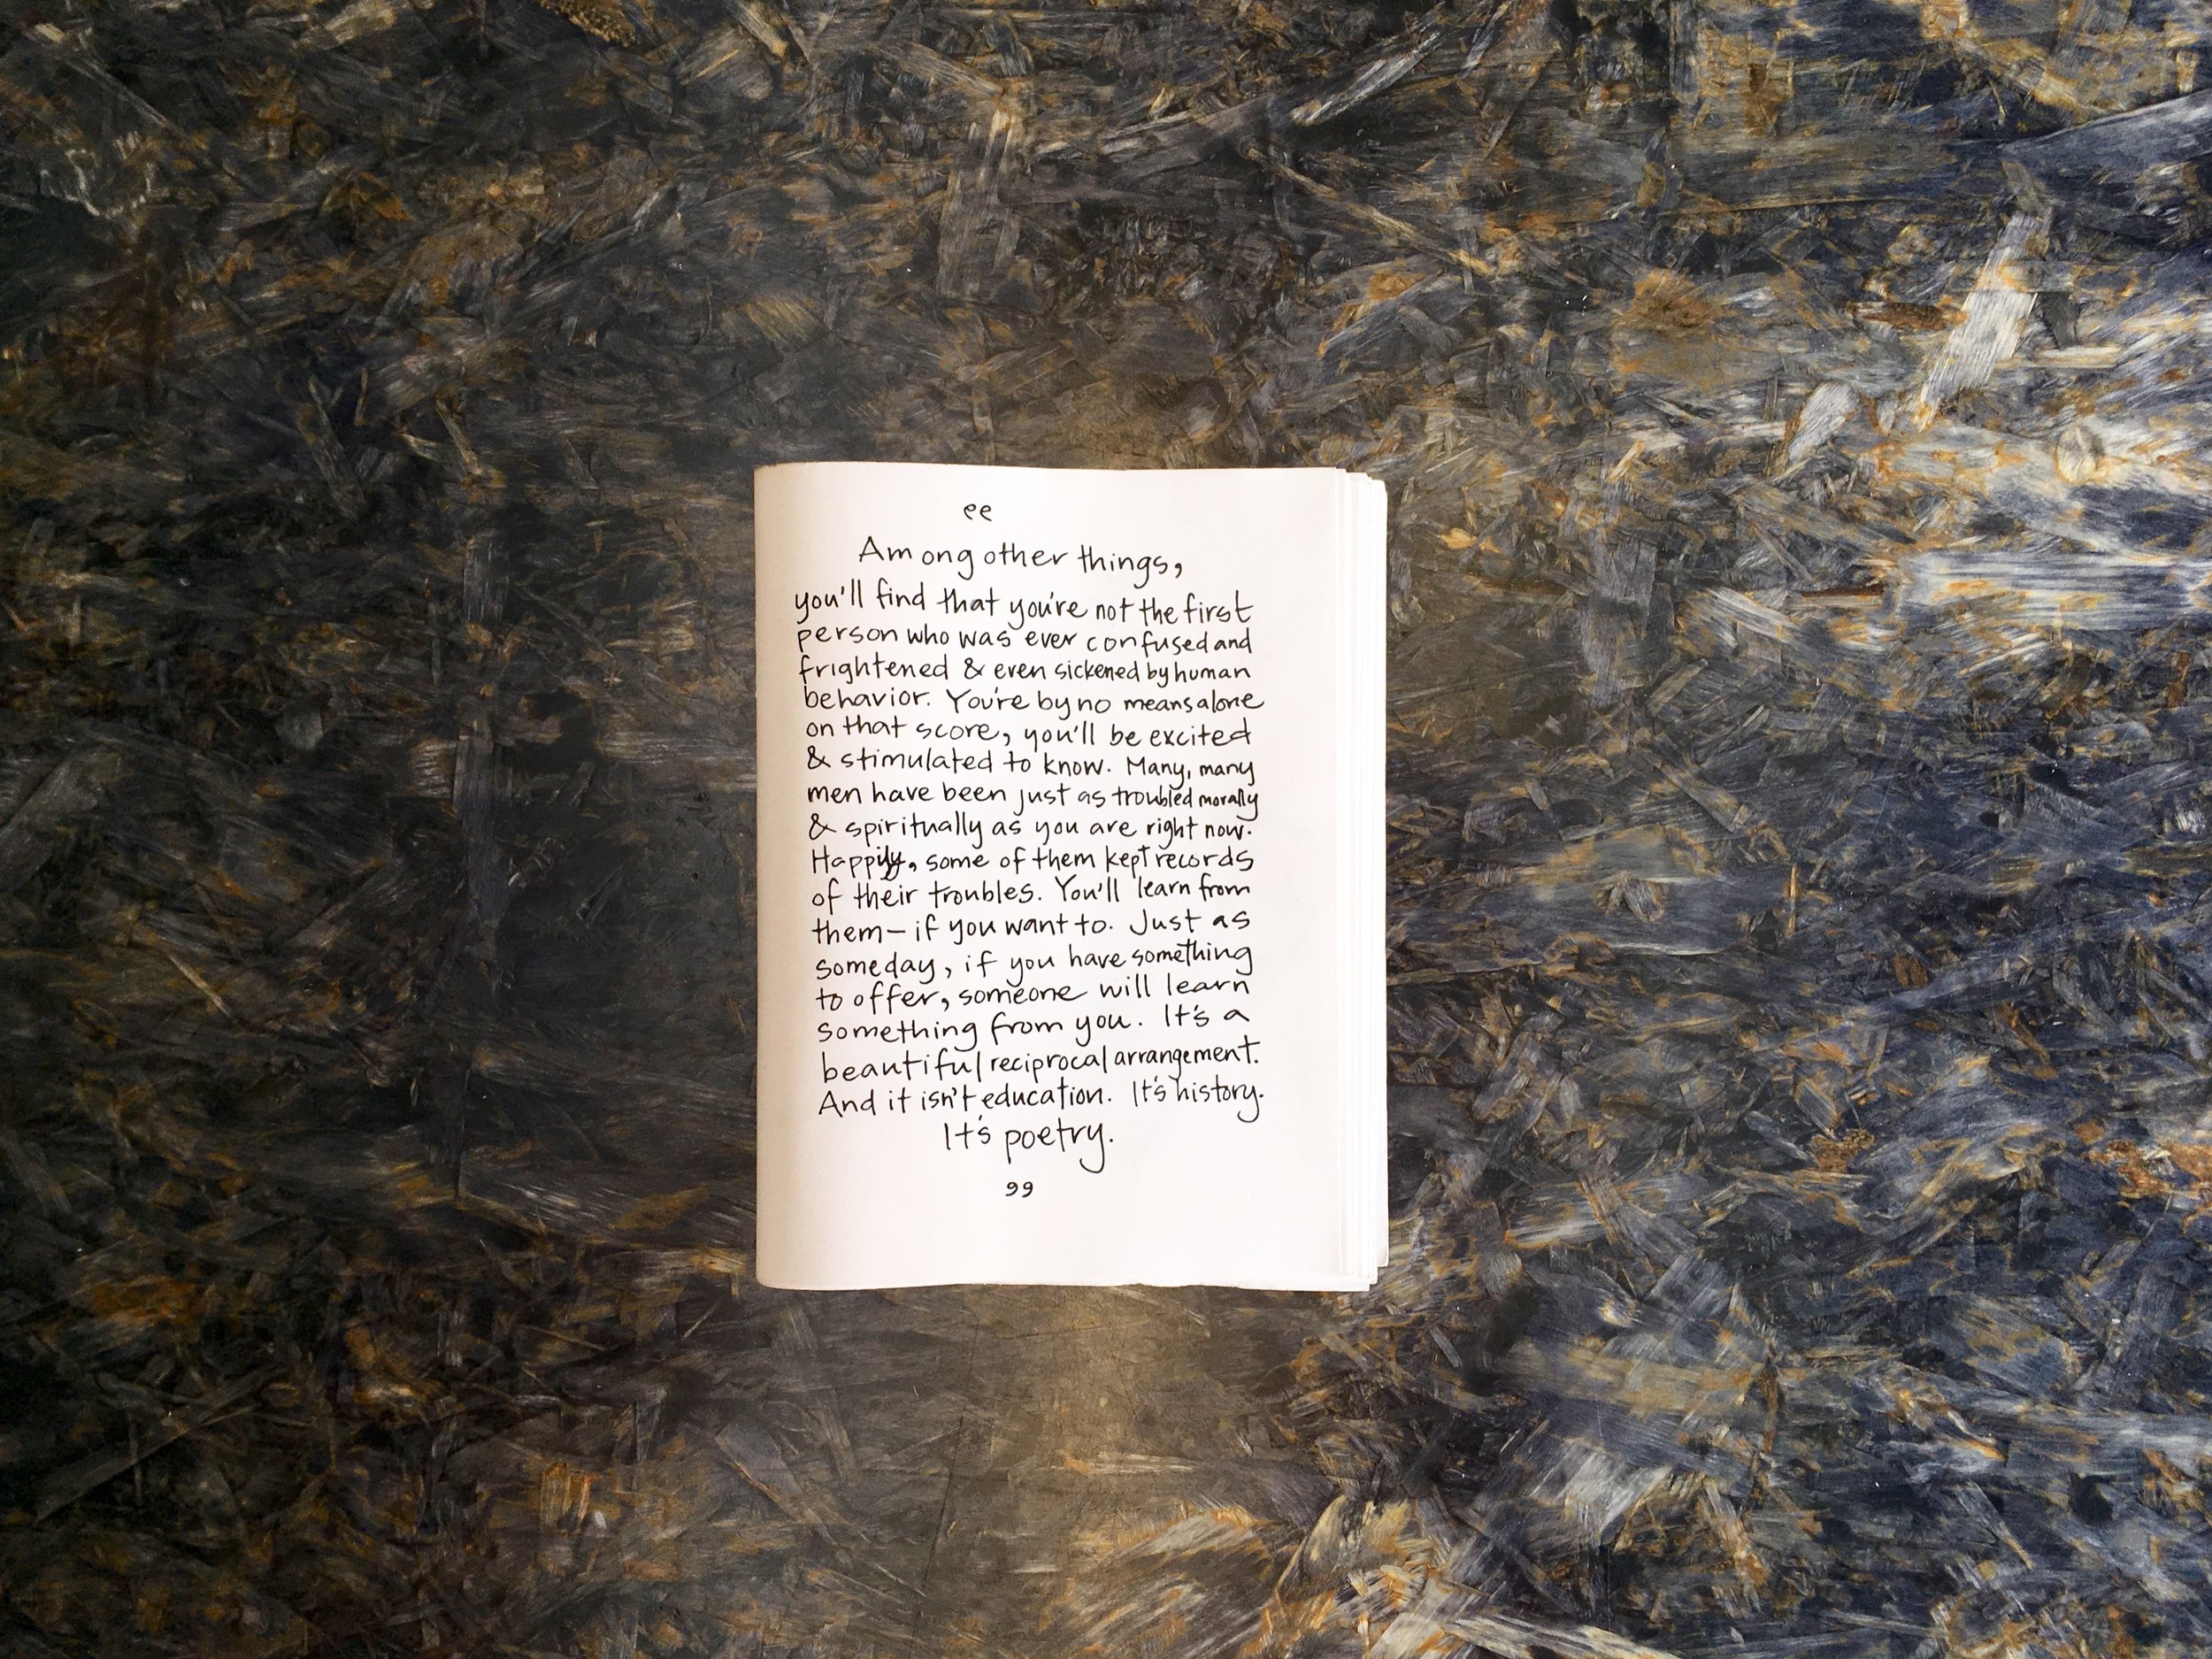 “
Among other things,
you'll find that you're not the first
person who was ever confused and
frightened & even sickened by human
behavior. You're by no means alone
on that score, you'll be excited
& stimulated to know. Many, many
men have been just as troubled morally
& spiritually as you are right now.
Happily, some of them kept records
of their troubles. You'll learn from
them— if you want to. Just as
someday, if you have something
to offer, someone will learn
something from you. It's a
beautiful reciprocal arrangement.
And it isn't education. It's history.
It's poetry.
”